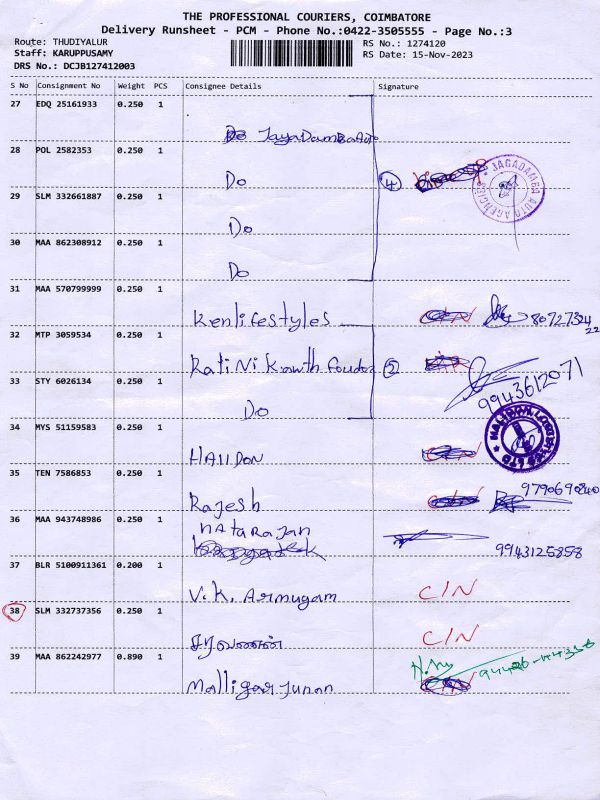 THE PROFESSIONAL COURIERS, COIMBATORE
Delivery Runsheet - PCM - Phone No.:0422-3505555 - Page No.:3
Route: THUDIYALUR
Staff: KARUPPUSAMY
DRS No.: DCJB127412003
RS No.: 1274120
RS Date: 15-Nov-2023
S No Consignment No Weight PCS Consignee Details Signature
27 EDQ 25161933 0.250 1
JayaDambaAuto
28 POL 2582353 0.250 1
Do
4
JAGADAMBA AUTO AGENCIES
29 SLM 332661887 0.250 1
Do
30 MAA 862308912 0.250 1
Do
31 MAA 570799999 0.250 1
Kenlifestyles
C/N
32 MTP 3059534 0.250 1
2
9943612071
33 STY 6026134 0.250 1
Do
34 MYS 51159583 0.250 1
HAIIDON
35 TEN 7586853 0.250 1
Rajesh
9790690840
36 MAA 943748986 0.250 1
NAtarajan
9943125858
37 BLR 5100911361 0.200 1
V.K. Armugam
C/N
38 SLM 332737356 0.250 1
சரவணன்
C/N
39 MAA 862242977 0.890 1
Malligarjunan